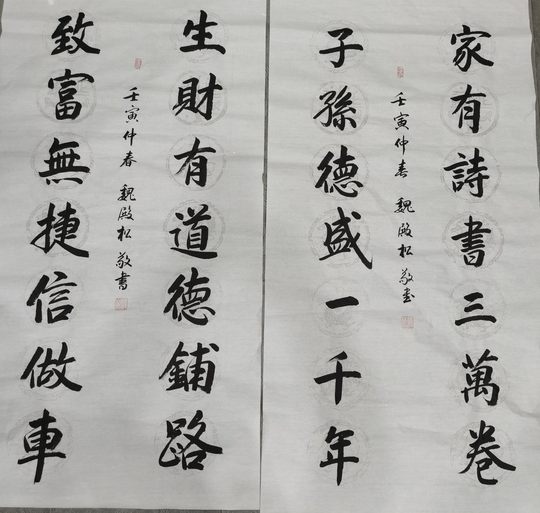 家有詩書三萬卷
子孫德盛一千年
壬寅仲春 魏殿松 敬書
生財有道德鋪路
致富無捷信做車
壬寅仲春 魏殿松 敬書